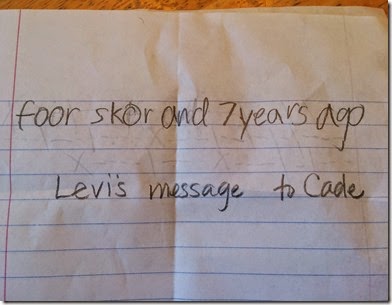 foor skor and 7 years ago
Levi's message to Cade